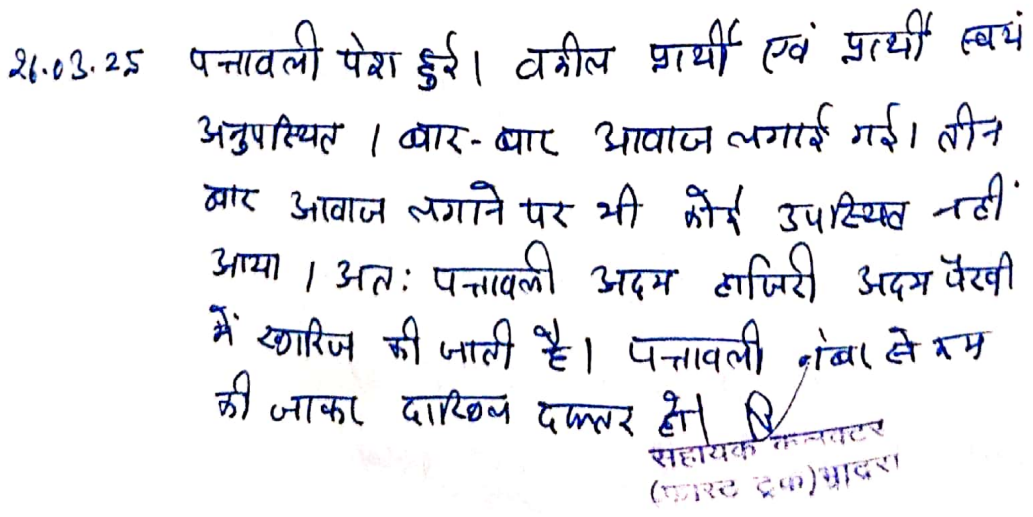 26.03.25 पत्रावली पेश हुई। वकील प्रार्थी एवं प्रार्थी स्वयं
अनुपस्थित । बार-बार आवाज लगाई गई। तीन
बार आवाज लगाने पर भी कोई उपस्थित नहीं
आया । अतः पत्रावली अदम हाजिरी अदम पैरवी
में खारिज की जाती है। पत्रावली नंबर से कम
की जाकर दाखिल दफ्तर हो।
सहायक कलक्टर
(फास्ट ट्रेक) भादरा